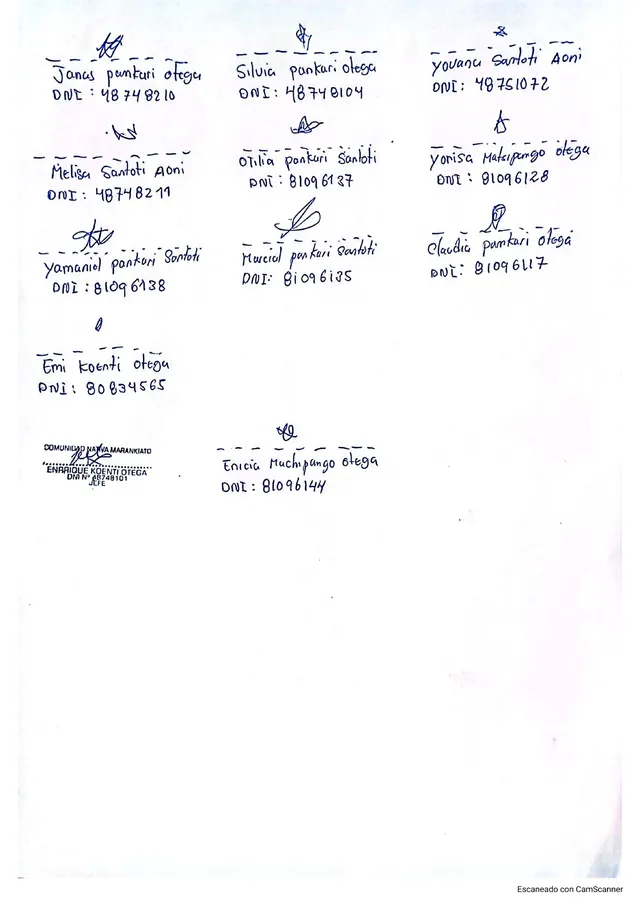 Janas pankari otega
DNI : 48748210
Silvia pankari otega
DNI : 48748104
yovana Santoti Aoni
DNI : 48751072
Melisa Santoti Aoni
DNI : 48748211
otilia pankari Santoti
DNI : 81096137
yorisa Matsipango otega
DNI : 81096128
yamaniel pankari Santoti
DNI : 81096138
Marcial pankari Santoti
DNI : 81096135
Claudia pamkari otega
DNI : 81096117
Emi koenti otega
DNI : 80834565
COMUNIDAD NATIVA MARANKIATO
ENRRIQUE KOENTI OTEGA
DNI N° 48748101
JEFE
Enicia Machipango otega
DNI : 81096144
Escaneado con CamScanner